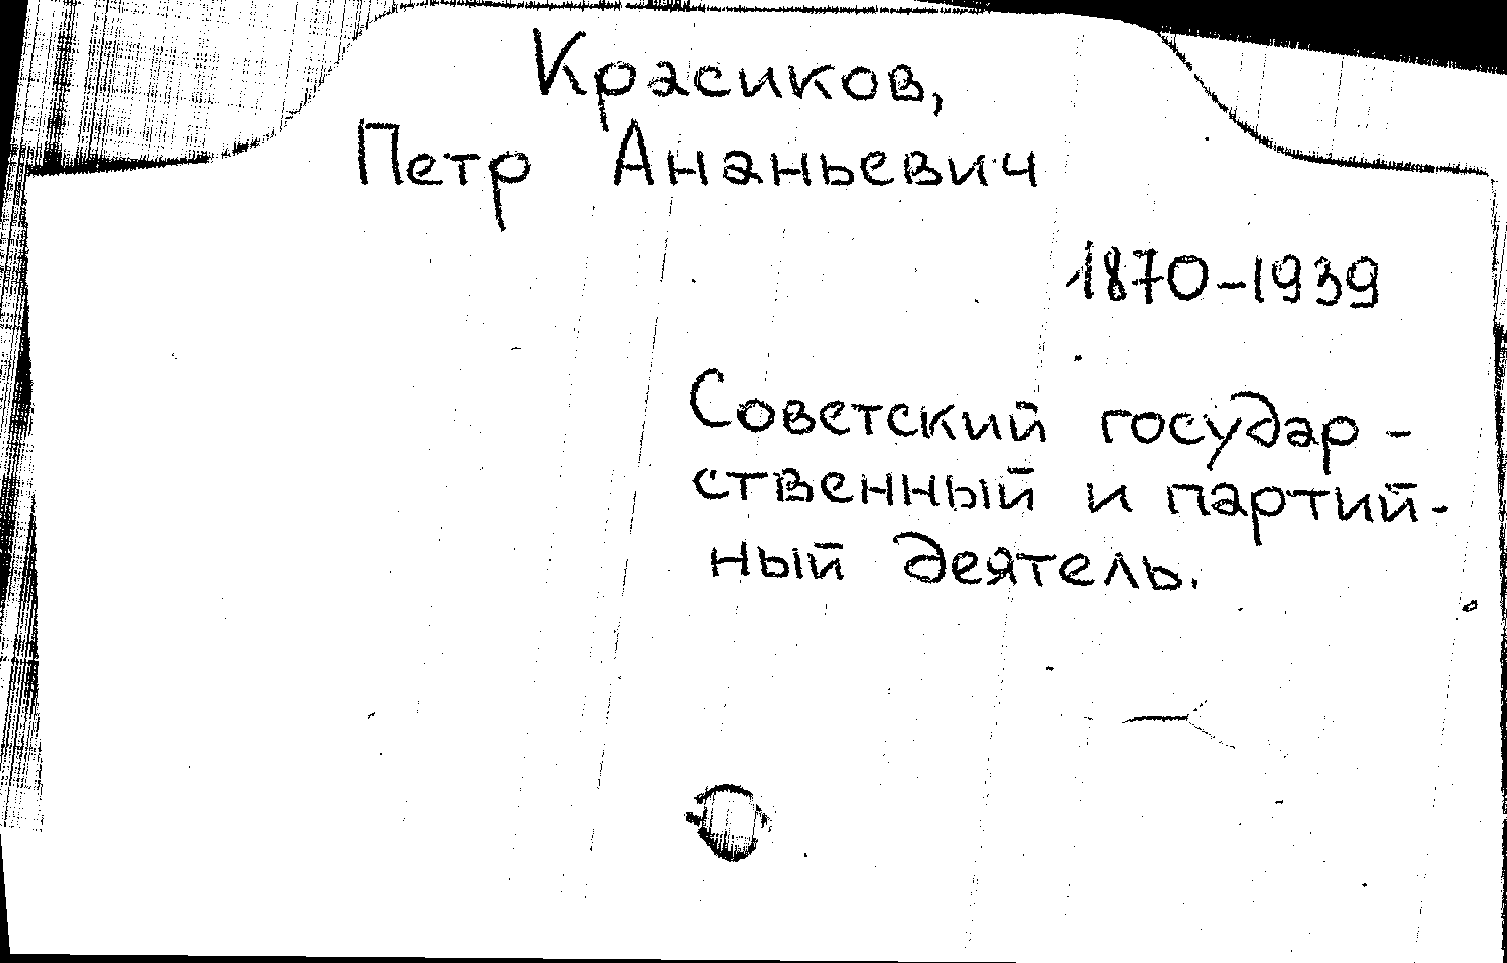 Красиков,
Петр Ананьевич
1870-1939
Советский государ-
ственный и партий-
ный деятель.